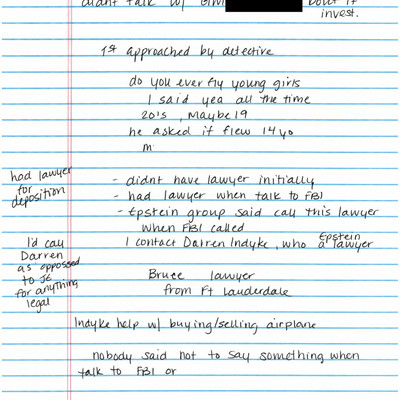 didnt talk w/ bout it
invest.
1st approached by detective
do you ever fly young girls
I said yea all the time
20's, Maybe 19
he asked if flew 14 yo
m
had lawyer
for
deposition
- didnt have lawyer initially
- had lawyer when talk to FBI
- Epstein group said call this lawyer
when FBI called
I'd call
Darren
as opposed
to JE
for anything
legal
I contact Darren Indyke, who a Epstein lawyer
Bruce lawyer
from Ft Lauderdale
Indyke help w/ buying/selling airplane
nobody said not to say something when
talk to FBI or